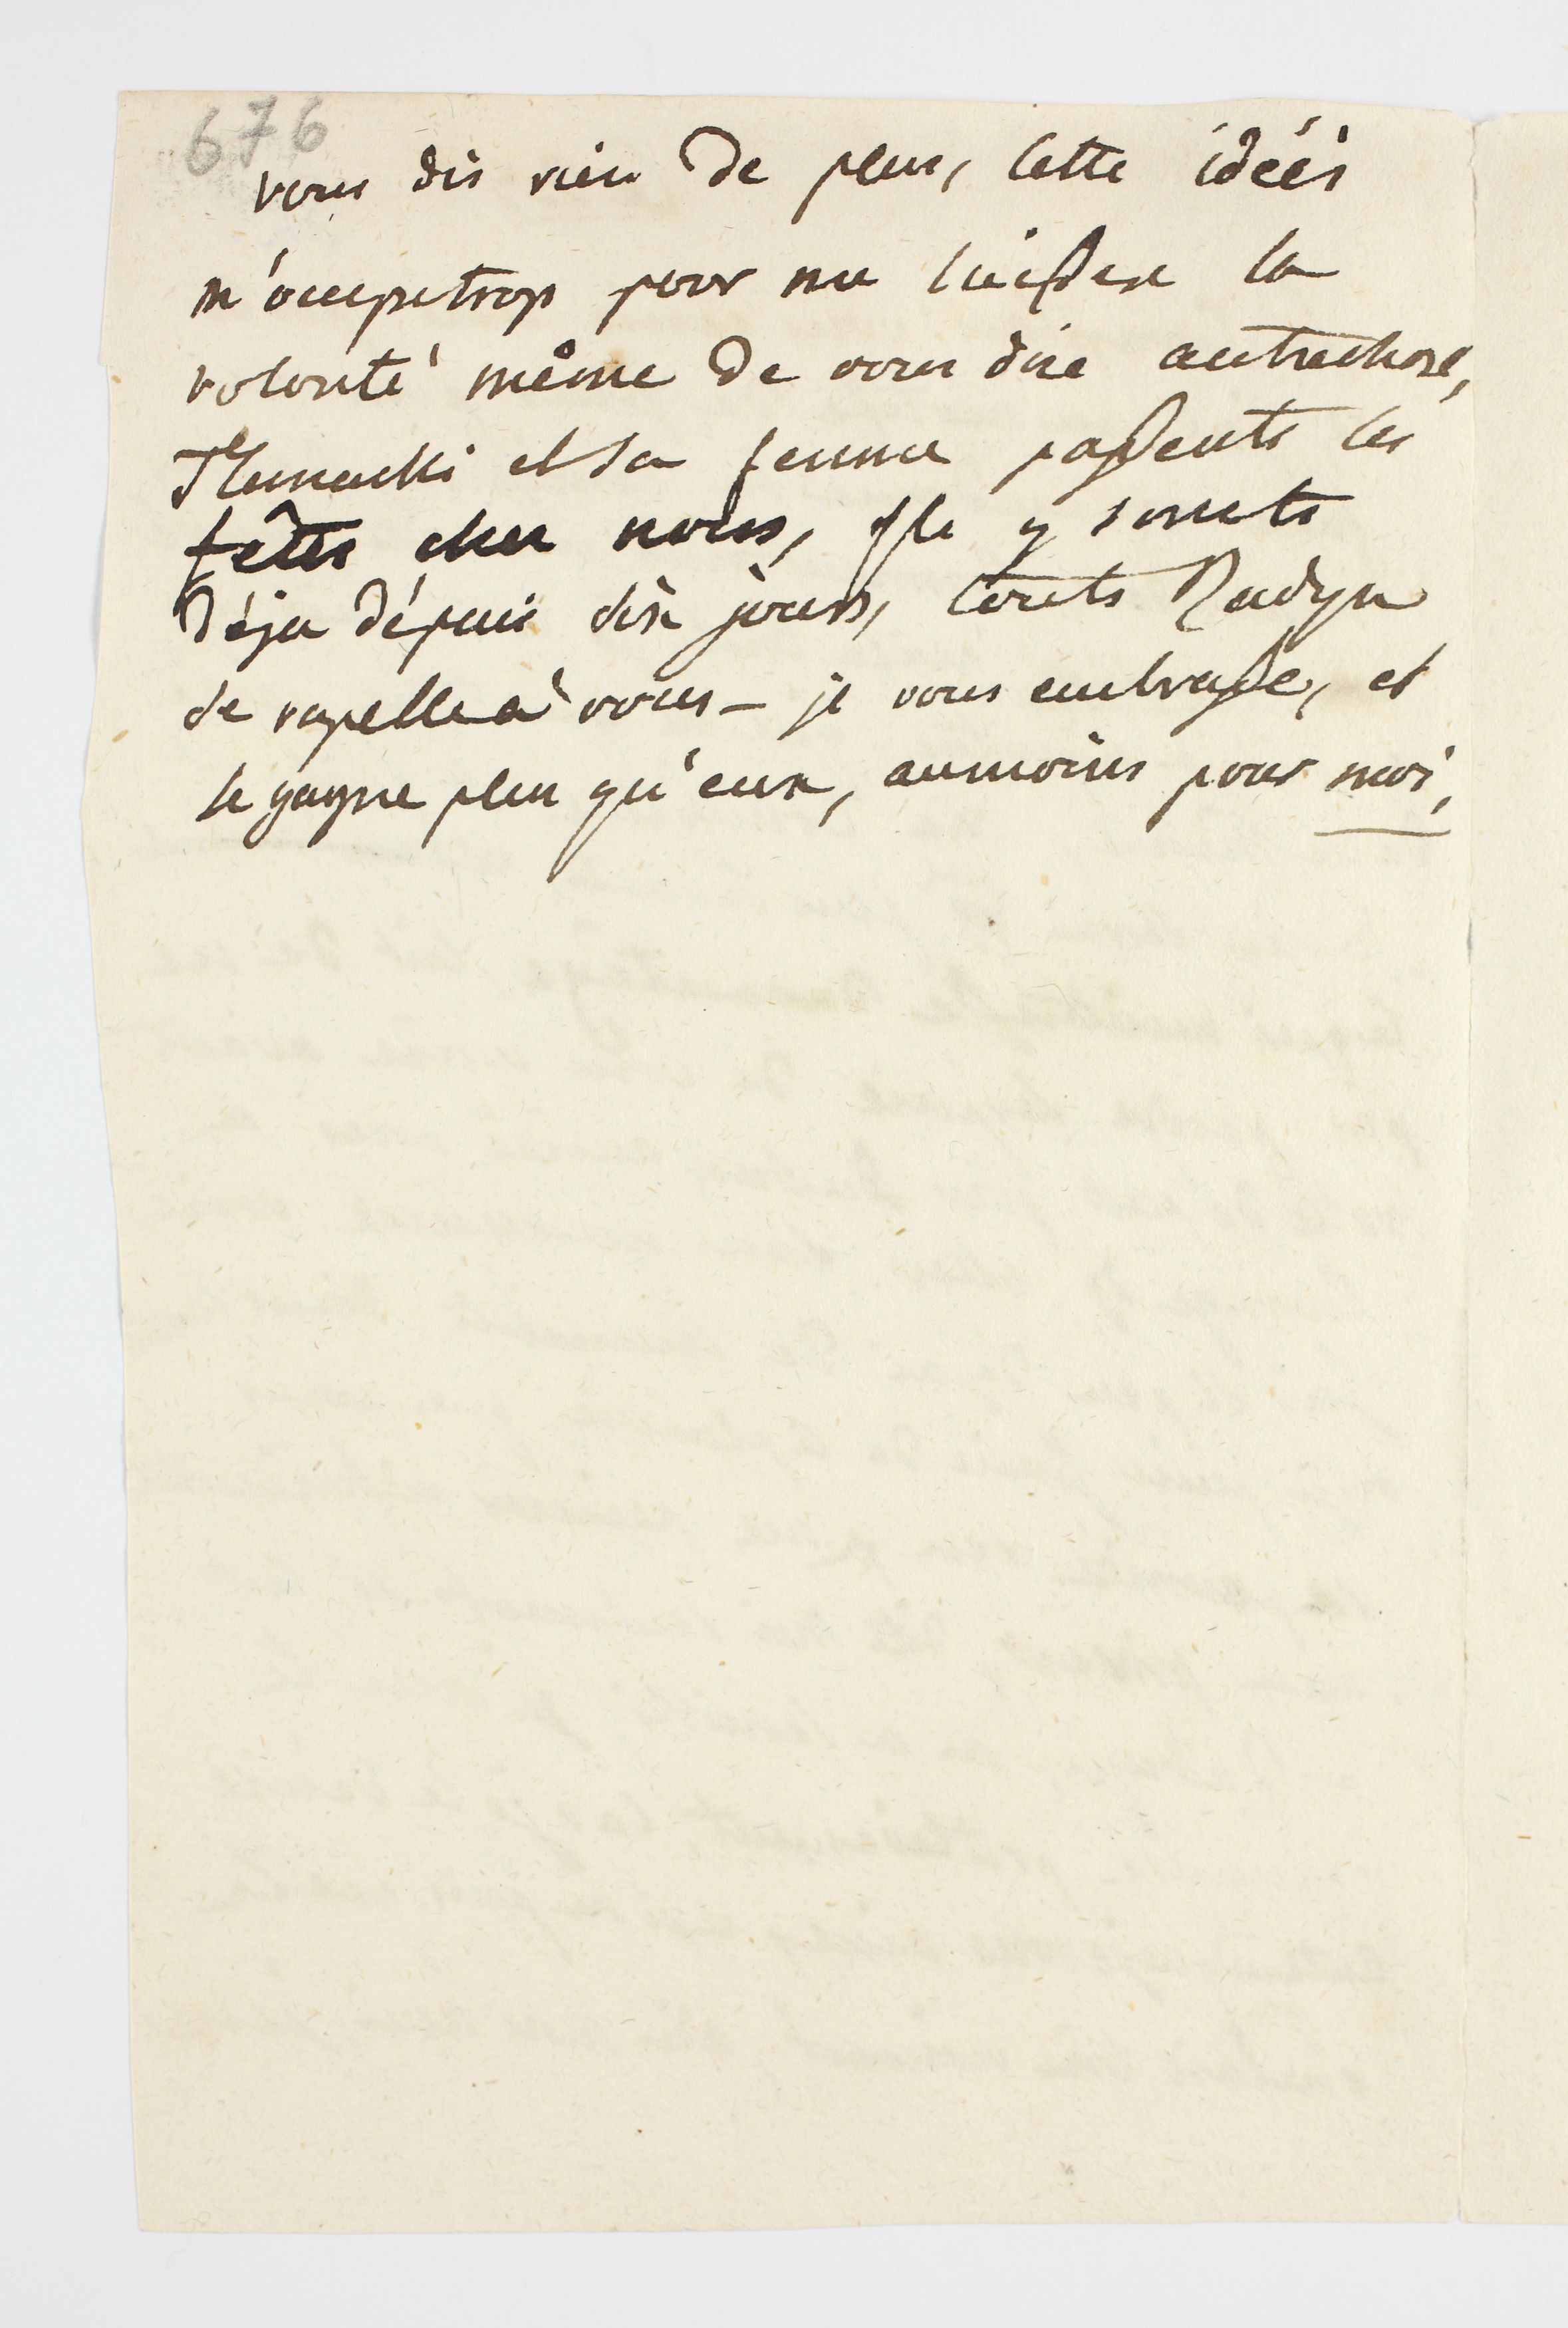 676
vous dis rien de plus, cette idéés
m'occupe trop pour me laisser la
volonté même de vous dire autrechose,
et sa femme passents les
fêtes chez nous, Ils y sonts
déja dépuis dix jours, touts Radyn
se rapelle à vous – je vous embrasse, et
se gagne plus qu'eux, aumoins pour moi,